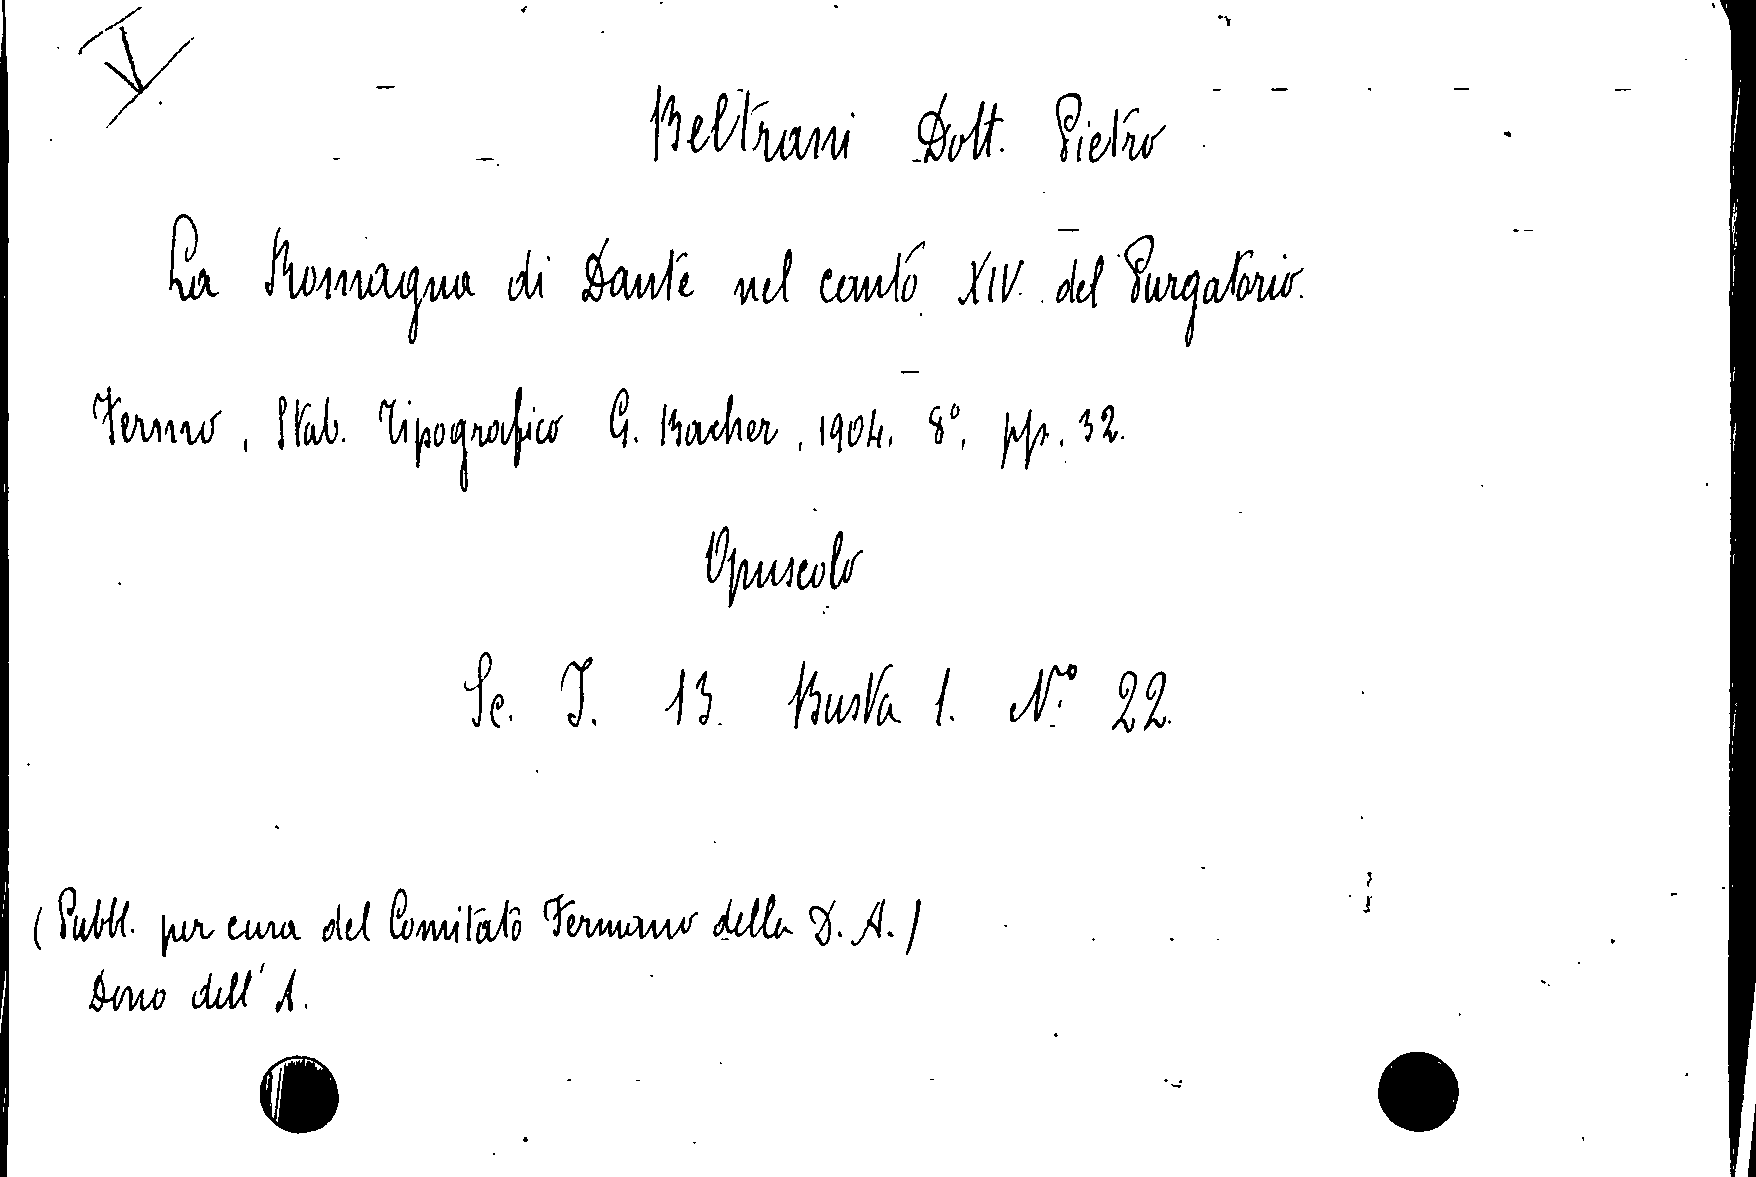 V
Beltrani Dott. Pietro
La Romagna di Dante nel canto XIV. del Purgatorio.
Fermo, Stab. Tipografico G. Bacher, 1904. 8°, pp. 32.
Opuscolo
Sc. I. 13. Busta 1. N.° 22.
(Pubbl. per cura del Comitato Fermano della D. A.)
Dono dell'A.